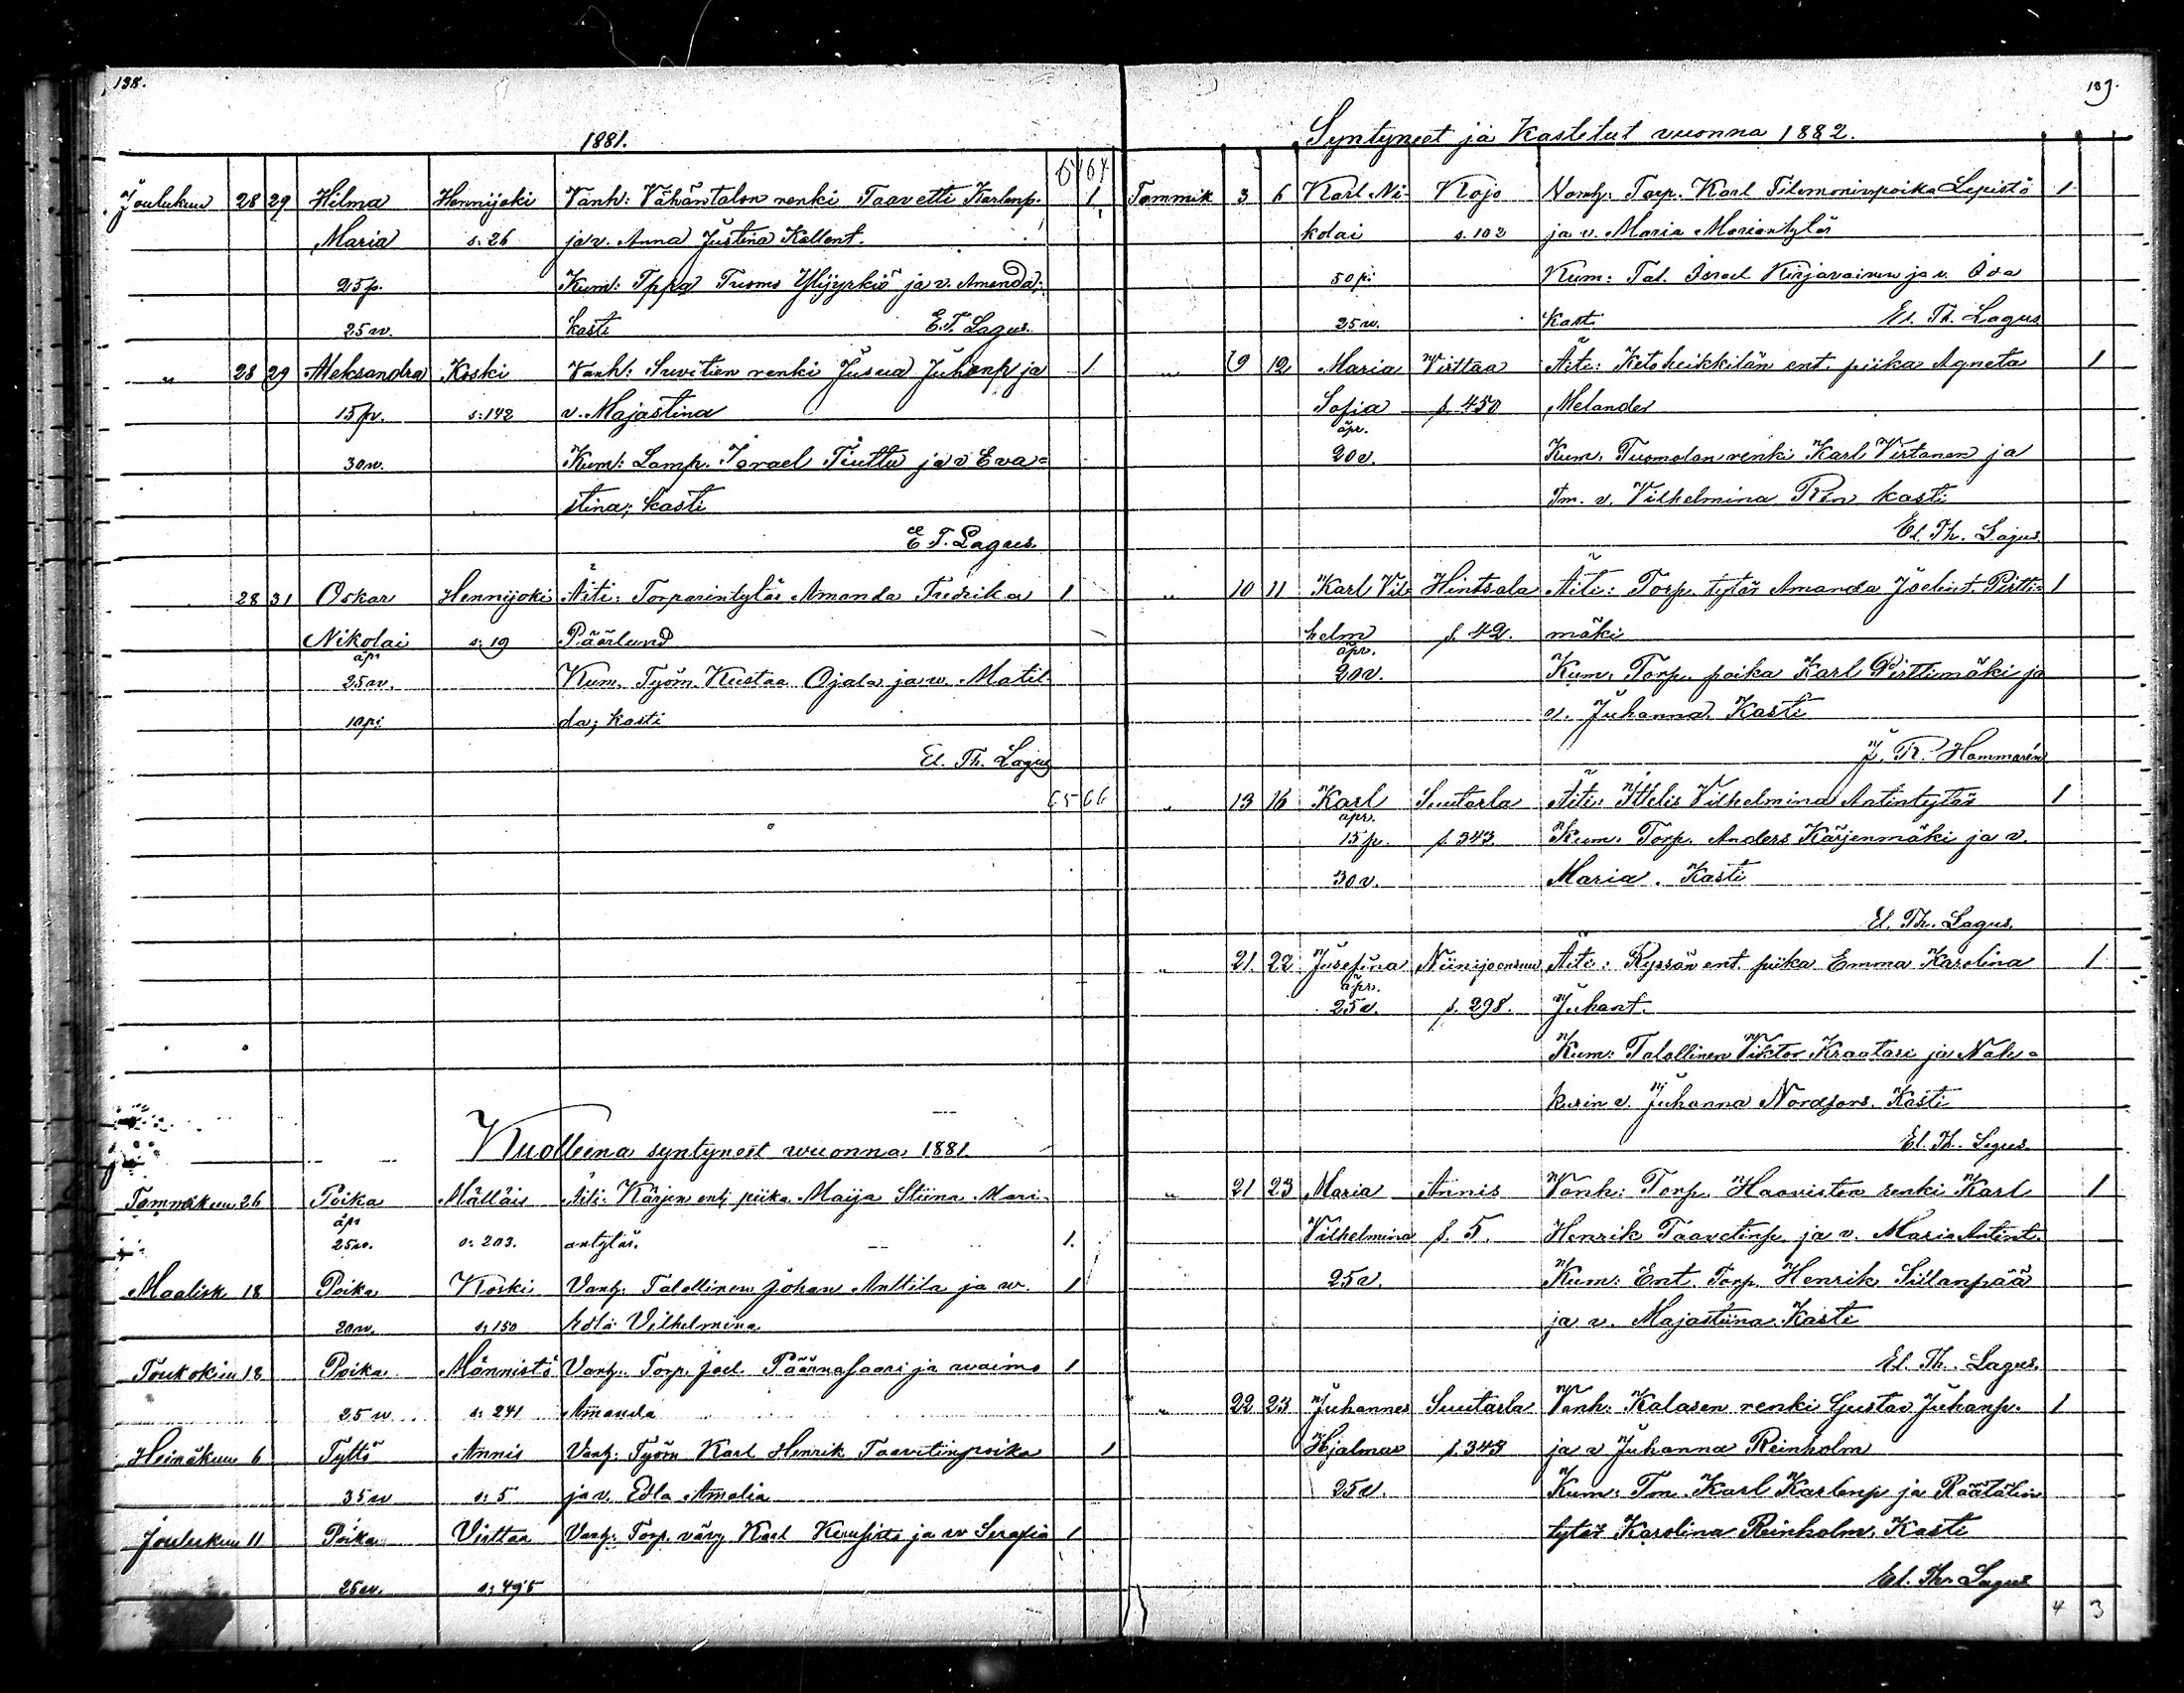 138.
1881.
64
Joulukuu 28 29 Hilma Hennijoki Vanh: Vähäntalon renki Taavetti Karlenp. 1
Maria s. 26 ja v. Anna Justina Kallent.
25 p. Kum: Tppa Tuomo Ylijyrkiö ja v. Amanda;
25 w. kasti E. T. Lagus.
„ 28 29 Aleksandra Koski Vanh: Suvitien renki Jusua Juhanp ja 1
15 pv. s: 142 v. Majastina
30 w. Kum: Lamp. Israel Tiuttu ja v Eva=
stina; kasti
E T. Lagus.
28 31 Oskar Hennijoki Äiti: Torparintytär Amanda Fredrika 1
Nikolai s: 19 Päärlund
äpr
25 w. Kum. Työm. Kustaa Ojala ja w. Matil
10 pi da; kasti
El. Th. Lagus
65 66
Kuolleena syntyneet wuonna 1881.
Tammikuu 26 Poika Mälläis Äiti: Kärjen ent; piika Maija Stiina Mari-
äpr
25 w. s: 203. antytär. 1.
Maalisk 18 Poika Koski Vanh: Talollinen Johan Anttila ja w. 1
20 w. s; 150 Edla Vilhelmina
Toukokuu 18 Poika Männistö Vanh: Torp. Joel Päärnasaari ja waimo 1
25 w s: 241 Amanda
Heinäkuu 6 Tyttö Annis Vanh: Työm Karl Henrik Taavetinpoika 1
35 w s: 5 ja v. Edla Amalia
Joulukuu 11 Poika Virttaa Vanh: Torp. väv; Karl ja w Serafia 1
25 w. s: 495
139.
Syntyneet ja Kastetut vuonna 1882.
Tammik 3 6 Karl Ni- Kojo Vanh: Torp. Karl Filemoninpoika Lepistö 1
kolai s. 102 ja v. Maria Mariantytär
50 p: Kum: Tal. Israel Kirjavainen ja v. Eva
25 w. Kast. El. Th. Lagus
„ 9 12 Maria Virttaa Äiti: Ketoheikkilän ent. piika Agneta 1
Sofia s. 450 Melander
äpr.
20 v. Kum. Tuomolan renki Karl Virtanen ja
Tm. v. Vilhelmina Rén kasti
El. Th. Lagus.
„ 10 11 Karl Vil- Hintsala Äiti: Torp. tytär Amanda Joelint. Pirtti= 1
helm s. 42. mäki
äpr.
20 v. Kum. Torp. poika Karl Pirttimäki ja
v. Juhanna. Kasti
J. R. Hammarén
„ 13 16 Karl Suutarla Äiti: Itsellis Vilhelmina Antintytär 1
äpr.
15 p. s. 343. Kum. Torp. Anders Kärjenmäki ja v.
30 v. Maria. Kasti
El. Th. Lagus.
„ 21. 22 Jusefina Niinijoensuu Äiti: Ryssän ent. piika Emma Karolina 1
äpr.
25 v. s. 298. Juhant.
Kum: Talollinen Viktor Kraatari ja Nah-
kurin v. Juhanna Nordfors. Kasti
El. Th. Lagus.
„ 21 23 Maria Annis Vanh: Torp. Haaviston renki Karl 1
Vilhelmina s. 5. Henrik Taavetinp. ja v. Maria Antint.
25 v. Kum: Ent. Torp. Henrik Sillanpää
ja v. Majastiina. Kasti
El. Th. Lagus.
„ 22 23 Juhannes Suutarla Vanh: Kalasen renki Gustav Juhanp. 1
Hjalmar s. 343 ja v Juhanna Reinholm
25 v. Kum: Tm. Karl Karlenp ja Räätälin
tytär Karolina Reinholm. Kasti
El. Th. Lagus
4 3